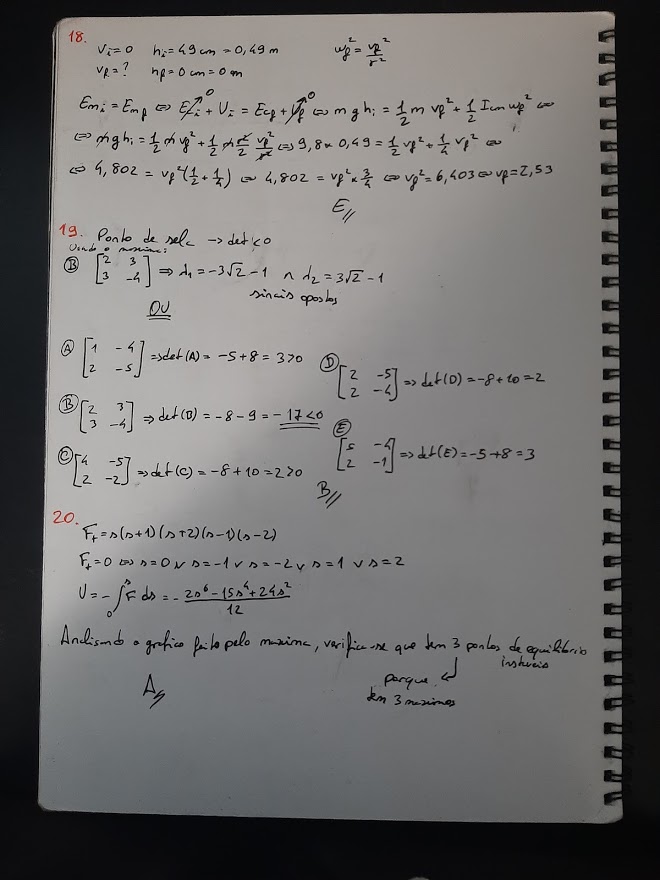 18.
v_i = 0 h_i = 49 cm = 0,49 m w_f^2 = v_f^2/r^2
v_f = ? h_f = 0 cm = 0 m
E_mi = E_mf ⇔ E_ci^0 + U_i = E_cf + U_f^0 ⇔ m g h_i = 1/2 m v_f^2 + 1/2 I_cm w_f^2 ⇔
⇔ m g h_i = 1/2 m v_f^2 + 1/2 m r^2/2 v_f^2/r^2 ⇔ 9,8 × 0,49 = 1/2 v_f^2 + 1/4 v_f^2 ⇔
⇔ 4,802 = v_f^2 (1/2 + 1/4) ⇔ 4,802 = v_f^2 × 3/4 ⇔ v_f^2 = 6,403 ⇔ v_f = 2,53
E//
19. Ponto de sela → det < 0
Usando o maxima:
B [2 3; 3 -4] ⇒ λ1 = -3√2 - 1 ∧ λ2 = 3√2 - 1
sinais opostos
OU
A [1 -4; 2 -5] ⇒ det(A) = -5+8 = 3>0
D [2 -5; 2 -4] ⇒ det(D) = -8+10 = 2
B [2 3; 3 -4] ⇒ det(B) = -8-9 = -17<0
E [5 -4; 2 -1] ⇒ det(E) = -5+8 = 3
C [4 -5; 2 -2] ⇒ det(C) = -8+10 = 2>0
B//
20.
F_t = s(s+1)(s+2)(s-1)(s-2)
F_t = 0 ⇔ s = 0 ∨ s = -1 ∨ s = -2 ∨ s = 1 ∨ s = 2
U = -∫_0^s F ds = - (2s^6 - 15s^4 + 24s^2)/12
Analisando o grafico feito pelo maxima, verifica-se que tem 3 pontos de equilibrio
instaveis
porque
tem 3 maximos
A//